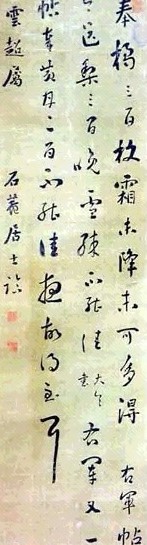 奉橘三百枚霜未降未可多得 右軍帖
今送梨三百晚雪殊不能佳 大令書 右軍又一
帖奉黃柑二百不能佳想故得至耳
雲超屬 石菴居士